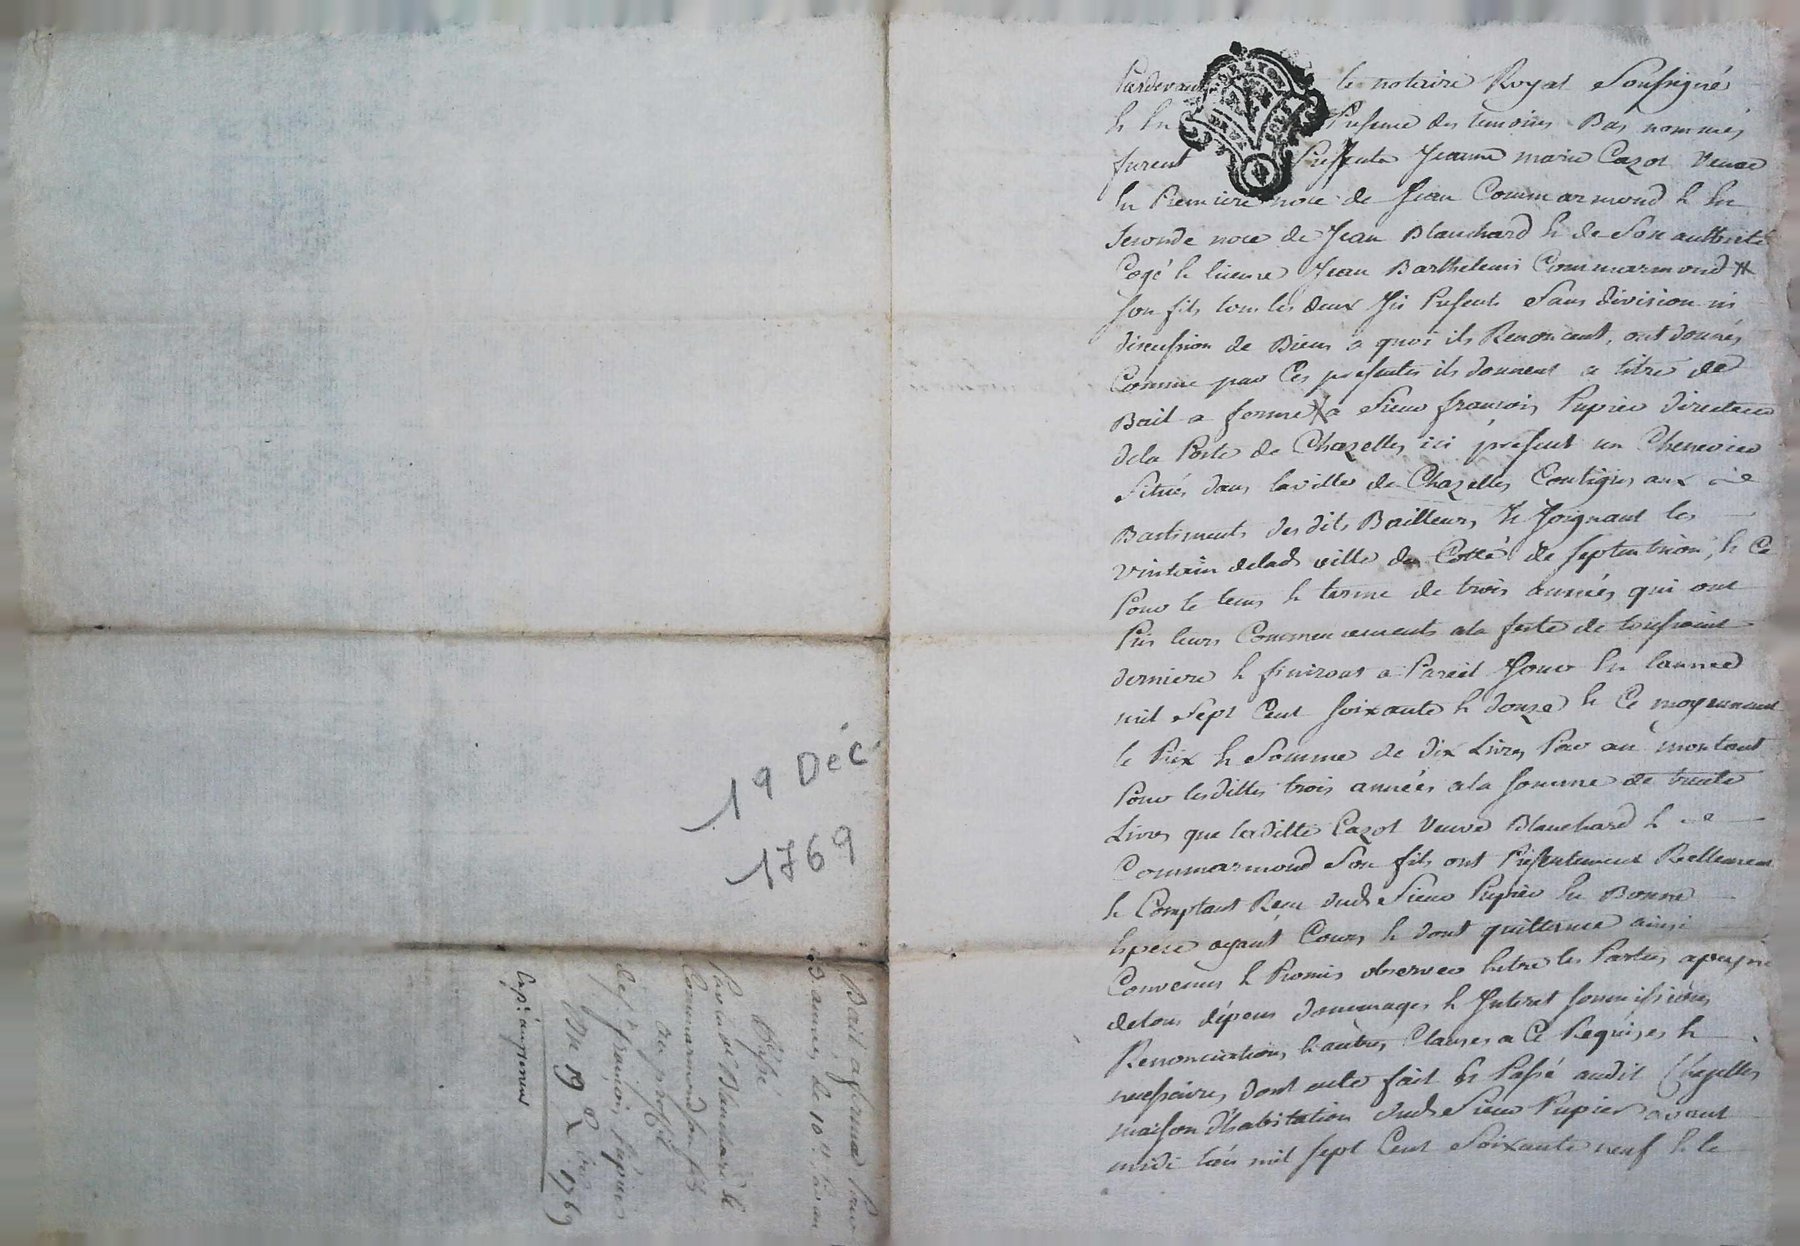 Pardevant le notaire Royal Soussigné
& En Presence des temoins Bas nommés
furent Presents Jeanne marie Cazot Veuve
En Premiere noce de Jean Commarmond & En
Seconde noce de Jean Blanchard & de Son authorité
Jean Barthelemi Commarmond
Son fils tous les deux Ici Presents Sans division ni
discussion de Biens a quoi ils Renoncent, ont donnés
Comme par Ces presentes ils donnent a titre de
Bail a ferme a Sieur francois Pupier directeur
dela Poste de Chazelles ici présent un Chenevier
Situés dans la ville de Chazelles Contigus aux
Bastiments desdits Bailleurs & Joignant les
Vintain delad ville du Cotté de septentrion, & Ce
Pour le tems & terme de trois années qui ont
Pris leurs Commencements ala feste de toussaint
derniere & finiront a Pareil Jour En lannée
mil Sept Cent Soixante & douze & Ce moyennant
le Prix & Somme de dix Livres Par an montant
Pour lesdittes trois années ala Somme de trente
Livres que laditte Cazot Veuve Blanchard &
Commarmond Son fils ont Présentement Reellement
& Comptant Recu dud Sieur Pupier En Bonne
Espece ayant Cours & dont quittance ainsi
Convenus & Promis observer Entre les Parties a peyne
detous dépens dommages & Interet Soumissions
Renonciations & autres Clauses a Ce Requises &
necessaires, dont acte fait & Passé audit Chazelles
maison d'habitation dud Sieur Pupier avant
midi lan mil Sept Cent Soixante neuf & le
19 Déc
1769
Bail a ferme Pour
3 années, de 10ll, Par an
Passé
Par la ve Blanchard &
Commarmond Son fils
au profit
de Sr francois Pupier
Du 19 Xbre 1769